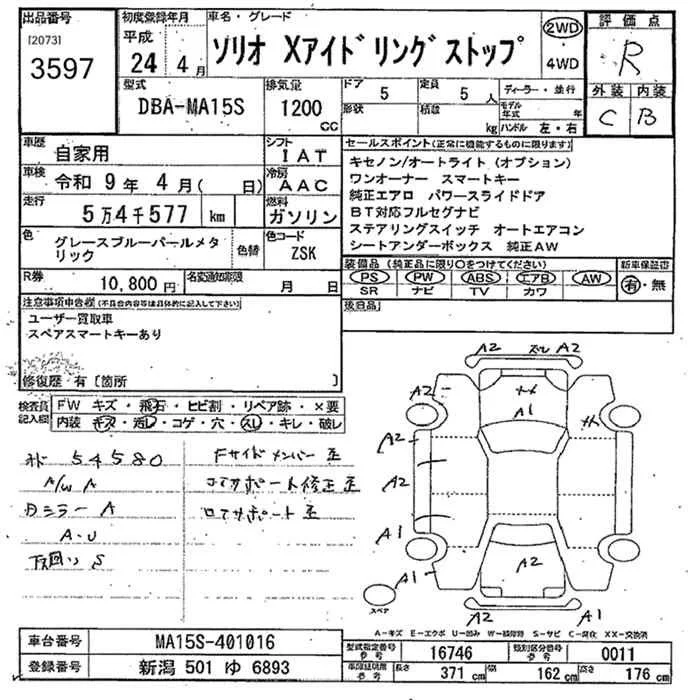 出品番号
[2073]
3597
初度登録年月
平成
24 4月
車名・グレード
ソリオ Xアイドリングストップ
2WD
・
4WD
評価点
R
外装 内装
C B
型式
DBA-MA15S
排気量
1200
cc
ドア
5
形状
定員
5 人
積載
kg
ディーラー・並行
モデル年式 年
ハンドル 左・右
車歴
自家用
シフト
IAT
車検
令和 9年 4月( 日)
冷房
AAC
走行
5万4千577 km
燃料
ガソリン
色
グレースブルーパールメタリック
色替
色コード
ZSK
R券
10,800円
名変通知期限
月 日
セールスポイント(正常に機能するものに限ります)
キセノン/オートライト(オプション)
ワンオーナー スマートキー
純正エアロ パワースライドドア
BT対応フルセグナビ
ステアリングスイッチ オートエアコン
シートアンダーボックス 純正AW
装備品(純正品に限り○をつけてください)
PS PW ABS エアB AW
SR ナビ TV カワ
新車保証書
有・無
後日品
注意事項申告欄(不具合内容等は具体的に記入して下さい)
ユーザー買取車
スペアスマートキーあり
修復歴・有〔箇所 〕
検査員記入欄
FW キズ・飛石・ヒビ割・リペア跡・×要
内装・キズ・汚レ・コゲ・穴・スレ・キレ・破レ
54580
A/W A
カミラー A
A・U
下廻り S
Fサイドメンバー
コアサポート修正
ロアサポート
A2 A2
A2
A1
A2
A2
A1
A1
A2
A2 A1
スペア
A-キズ E-エクボ U-凹み W-補修跡 S-サビ C-腐化 XX-交換済
車台番号
MA15S-401016
登録番号
新潟 501 ゆ 6893
型式指定番号参考
16746
類別区分番号参考
0011
車庫証明用参考
長さ 371 cm 幅 162 cm 高さ 176 cm